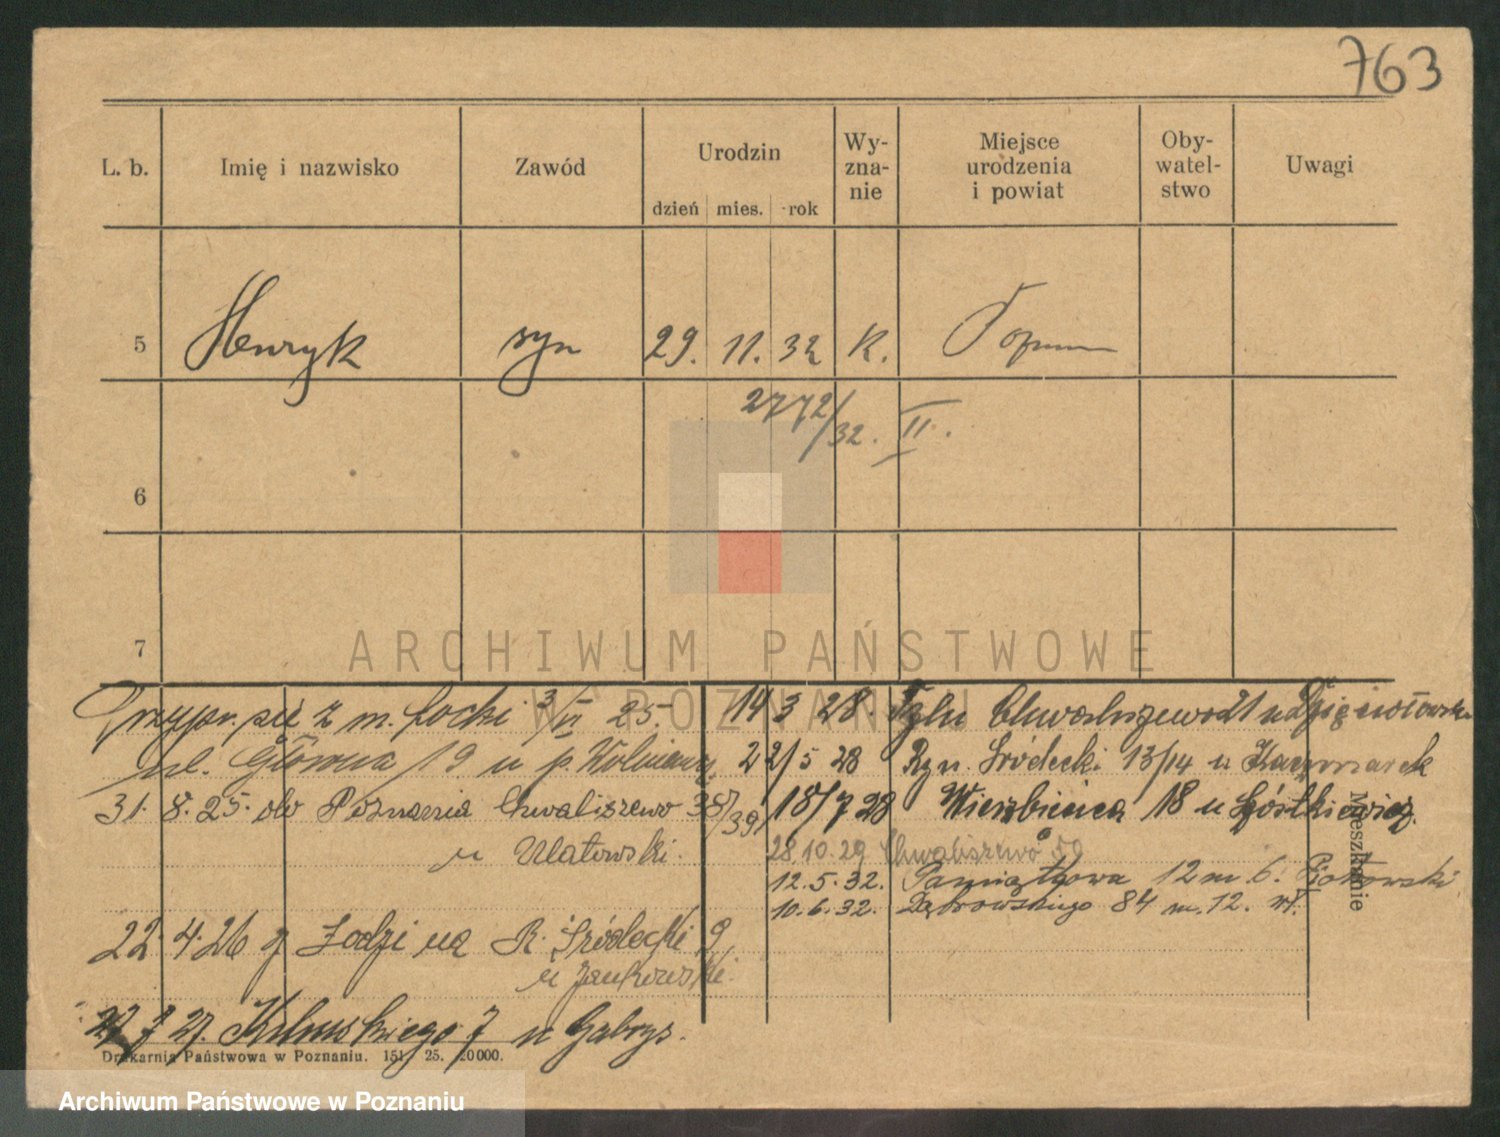 763
L. b. Imię i nazwisko Zawód Urodzin dzień mies. rok Wy-zna-nie Miejsce urodzenia i powiat Oby-watel-stwo Uwagi
5 Henryk syn 29. 11. 32 K. Poznań
2772/32. II.
6
7
ARCHIWUM PAŃSTWOWE
W POZNANIU
z m. 3/VI 25.
ul. Główna 19 u p.
31. 8. 25. do Poznania Chwaliszewo 38/39
u Ulatowski.
22. 4. 26 z Łodzi na R. Śródecki 9
u Jankowski.
27. Kilińskiego 7 u Gabrys.
14 3 28. Tylu Chwaliszewo 71 u
22/5 28 Ryn. Śródecki 13/14 u Kaczmarek
18/7 28 Wierzbięcica 18 u
28.10.29 Chwaliszewo 59
12.5.32. Pamiątkowa 12 m 6. Piotrowski
10.6.32. Dąbrowskiego 84 m. 12. wł.
Mieszkanie
Drukarnia Państwowa w Poznaniu. 151 25. 20000.
Archiwum Państwowe w Poznaniu